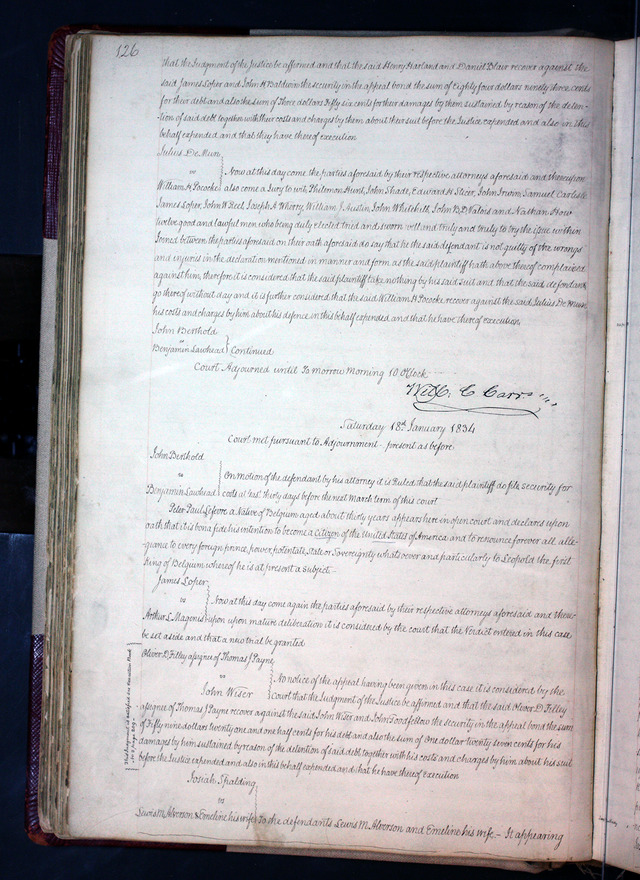 126
that the Judgment of the Justice be affirmed and that the said Henry Harland and Daniel Blair recover against the
said James Loper and John H Baldwin the security in the appeal bond the sum of eighty four dollars ninety three cents
for their debt and also the sum of Three dollars Fifty six cents for their damages by them sustained by reason of the deten-
tion of said debt together with their costs and charges by them about their suit before the Justice expended and also in this
behalf expended and that they have thereof execution
Julius De Mun
vs
Now at this day come the parties aforesaid by their respective attorneys aforesaid and thereupon
William H Pococke also come a Jury to wit Philemon Hunt, John Shade, Edward H Steer, John Irwin, Samuel Carlisle
James Loper, John W Reel, Joseph A Wherry, William J Austin, John Whitehill, John B D Valois and Nathan How
twelve good and lawful men who being duly elected tried and sworn well and truly and truly to try the issue within
Joined between the parties aforesaid on their oath aforesaid do say that he the said defendant is not guilty of the wrongs
and injuries in the declaration mentioned in manner and form as the said plaintiff hath above thereof complained
against him, therefore it is considered that the said plaintiff take nothing by his said suit and that the said defendant
go thereof without day and it is further considered that the said William H Pococke recover against the said Julius De Mun
his costs and charges by him about his defence in this behalf expended and that he have thereof execution
John Berthold
vs
Benjamin Lawhead Continued
Court Adjourned until Tomorrow Morning 10 OClock
Will. C Carr
Saturday 18th January 1834
Court met pursuant to Adjournment present as before
John Berthold
vs
On motion of the defendant by his attorney it is Ruled that the said plaintiff do file security for
Benjamin Lawhead costs at least thirty days before the next March term of this court
Peter Paul Lefevre a Native of Belgium aged about thirty years appears here in open court and declares upon
oath that it is bona fide his intention to become a Citizen of the United States of America and to renounce forever all alle-
giance to every foreign prince, power, potentate, State or Sovereignty whatsoever and particularly to Leopold the first
King of Belgium whereof he is at present a subject—
James Loper
vs
Now at this day come again the parties aforesaid by their respective attorneys aforesaid and there-
Arthur L Magenis upon upon mature deliberation it is considered by the court that the Verdict entered in this case
be set aside and that a new trial be granted
Oliver D Filley assignee of Thomas J Payne
vs
No notice of the appeal having been given in this case it is considered by the
John Wiser Court that the Judgment of the Justice be affirmed and that the said Oliver D Filley
assignee of Thomas J Payne recover against the said John Wiser and John Goodfellow the security in the appeal bond the sum
of Fifty nine dollars twenty one and one half cents for his debt and also the sum of One dollar twenty seven cents for his
damages by him sustained by reason of the detention of said debt together with his costs and charges by him about his suit
before the Justice expended and also in this behalf expended and that he have thereof execution
This Judgment is satisfied see Execution Book
Josiah Spalding
vs
Lewis M Alverson & Emeline his wife To the defendants Lewis M. Alverson and Emeline his wife— It appearing